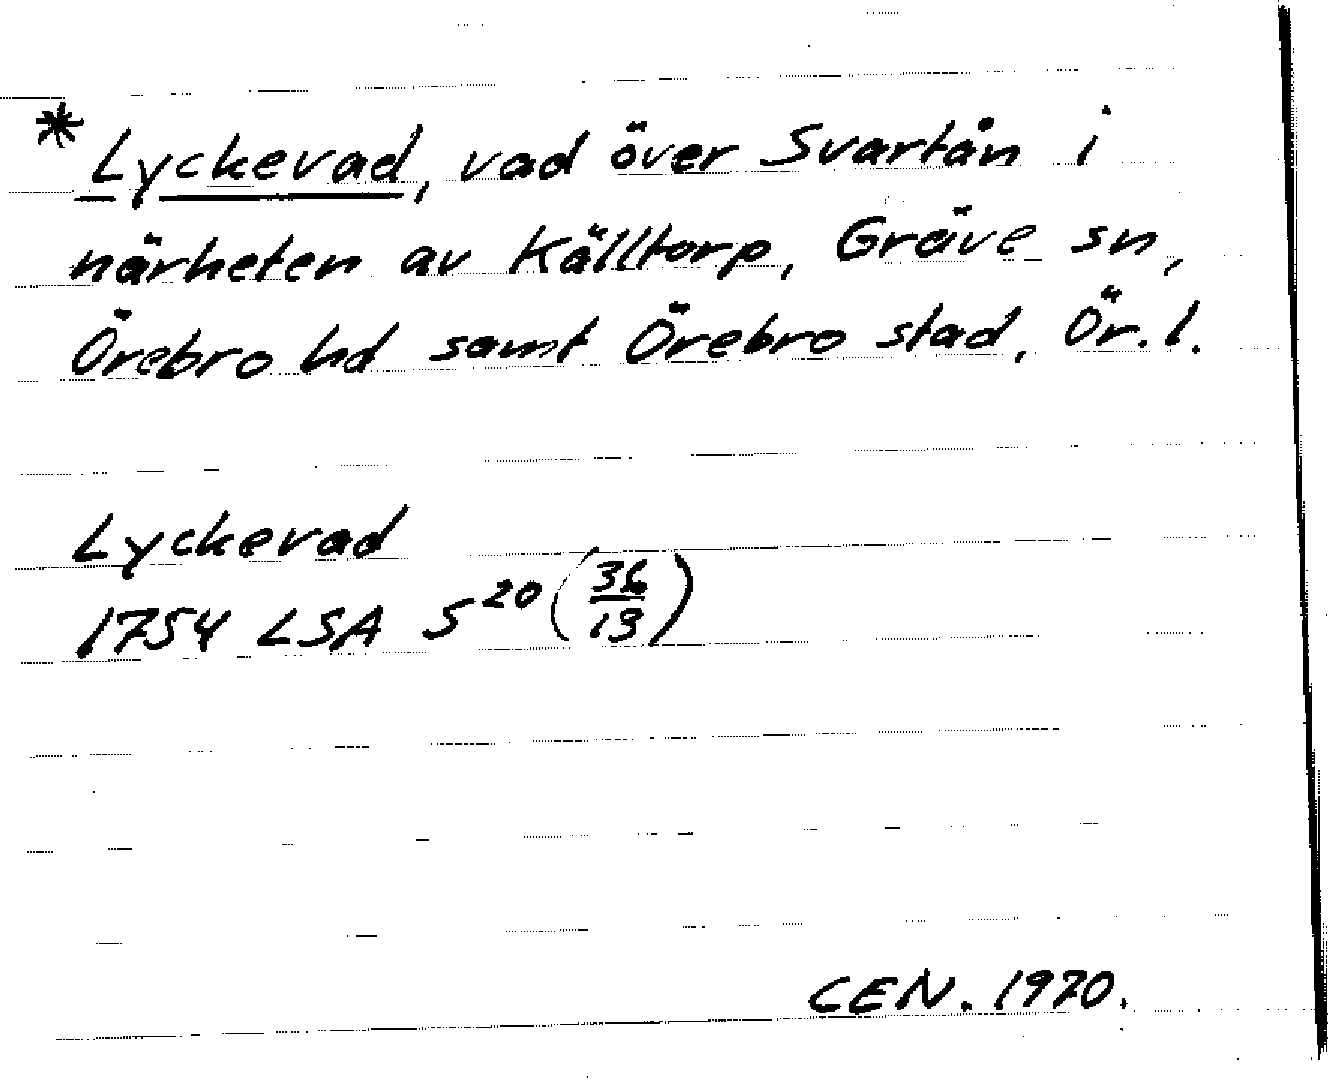 * Lyckevad, vad över Svartån i
närheten av Källtorp, Gräve sn,
Örebro hd samt Örebro stad, Ör. l.
Lyckevad
1754 LSA S 20 (36/13)
CEN. 1970.